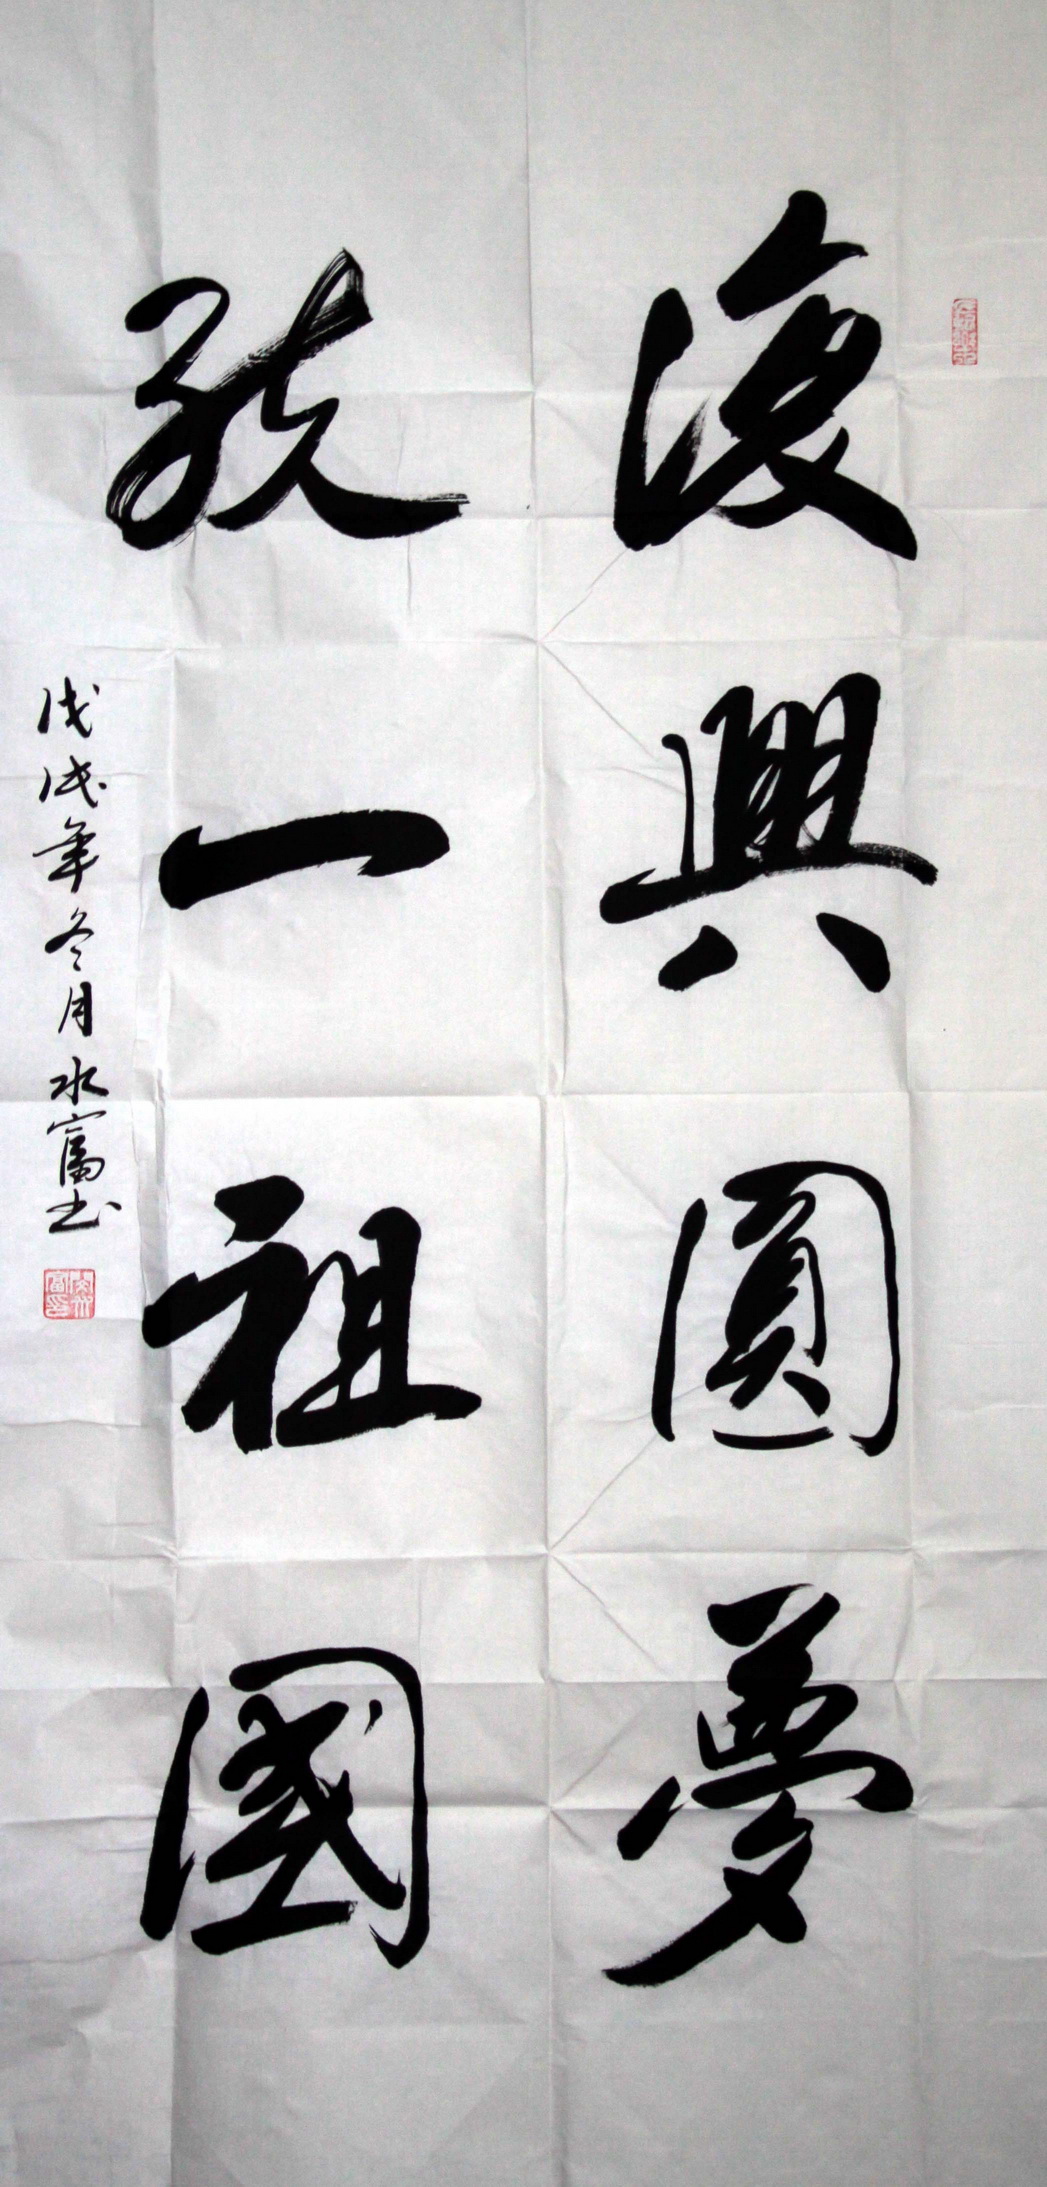 復興圓夢
統一祖國
戊戌年冬月水富书